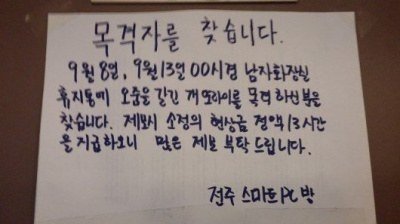 목격자를 찾습니다.
9월 8일, 9월 13일 00시경 남자화장실
휴지통에 오줌을 갈긴 개또라이를 목격하신분을
찾습니다. 제보시 소정의 현상금 정액 13시간
을 지급하오니 많은 제보 부탁드립니다.
전주 스마트PC방